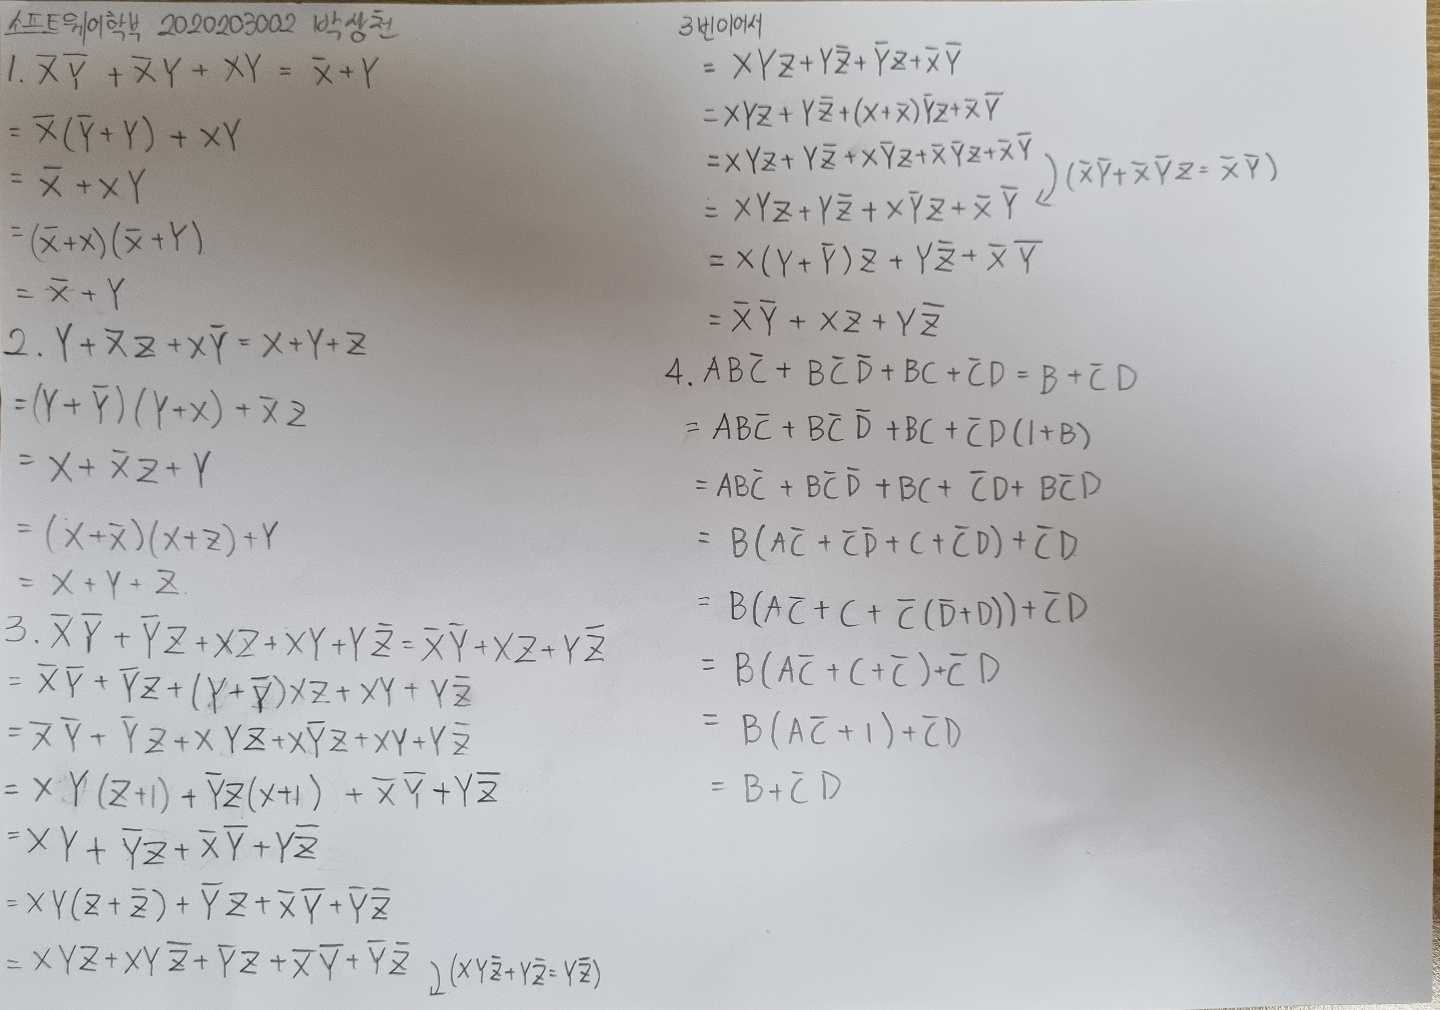 소프트웨어학부 2020203002 박상천
1. X̅ Y̅ + X̅ Y + XY = X̅ + Y
= X̅(Y̅+Y) + XY
= X̅ + XY
= (X̅+X)(X̅+Y)
= X̅ + Y
2. Y + X̅Z + XY̅ = X+Y+Z
= (Y+Y̅)(Y+X) + X̅Z
= X + X̅Z + Y
= (X+X̅)(X+Z)+Y
= X + Y + Z
3. X̅Y̅ + Y̅Z + XZ + XY + YZ̅ = X̅Y̅ + XZ + YZ̅
= X̅Y̅ + Y̅Z + (Y+Y̅)XZ + XY + YZ̅
= X̅Y̅ + Y̅Z + XYZ + XY̅Z + XY + YZ̅
= XY(Z+1) + Y̅Z(X+1) + X̅Y̅ + YZ̅
= XY + Y̅Z + X̅Y̅ + YZ̅
= XY(Z+Z̅) + Y̅Z + X̅Y̅ + Y̅Z̅
= XYZ + XYZ̅ + Y̅Z + X̅Y̅ + Y̅Z̅
(XYZ̅+YZ̅=YZ̅)
3번이어서
= XYZ + YZ̅ + Y̅Z + X̅Y̅
= XYZ + YZ̅ + (X+X̅)Y̅Z + X̅Y̅
= XYZ + YZ̅ + XY̅Z + X̅Y̅Z + X̅Y̅
(X̅Y̅+X̅Y̅Z=X̅Y̅)
= XYZ + YZ̅ + XY̅Z + X̅Y̅
= X(Y+Y̅)Z + YZ̅ + X̅Y̅
= X̅Y̅ + XZ + YZ̅
4. ABC̅ + BC̅D̅ + BC + C̅D = B + C̅D
= ABC̅ + BC̅D̅ + BC + C̅D(1+B)
= ABC̅ + BC̅D̅ + BC + C̅D + BC̅D
= B(AC̅ + C̅D̅ + C + C̅D) + C̅D
= B(AC̅ + C + C̅(D̅+D)) + C̅D
= B(AC̅ + C + C̅) + C̅D
= B(AC̅ + 1) + C̅D
= B + C̅D